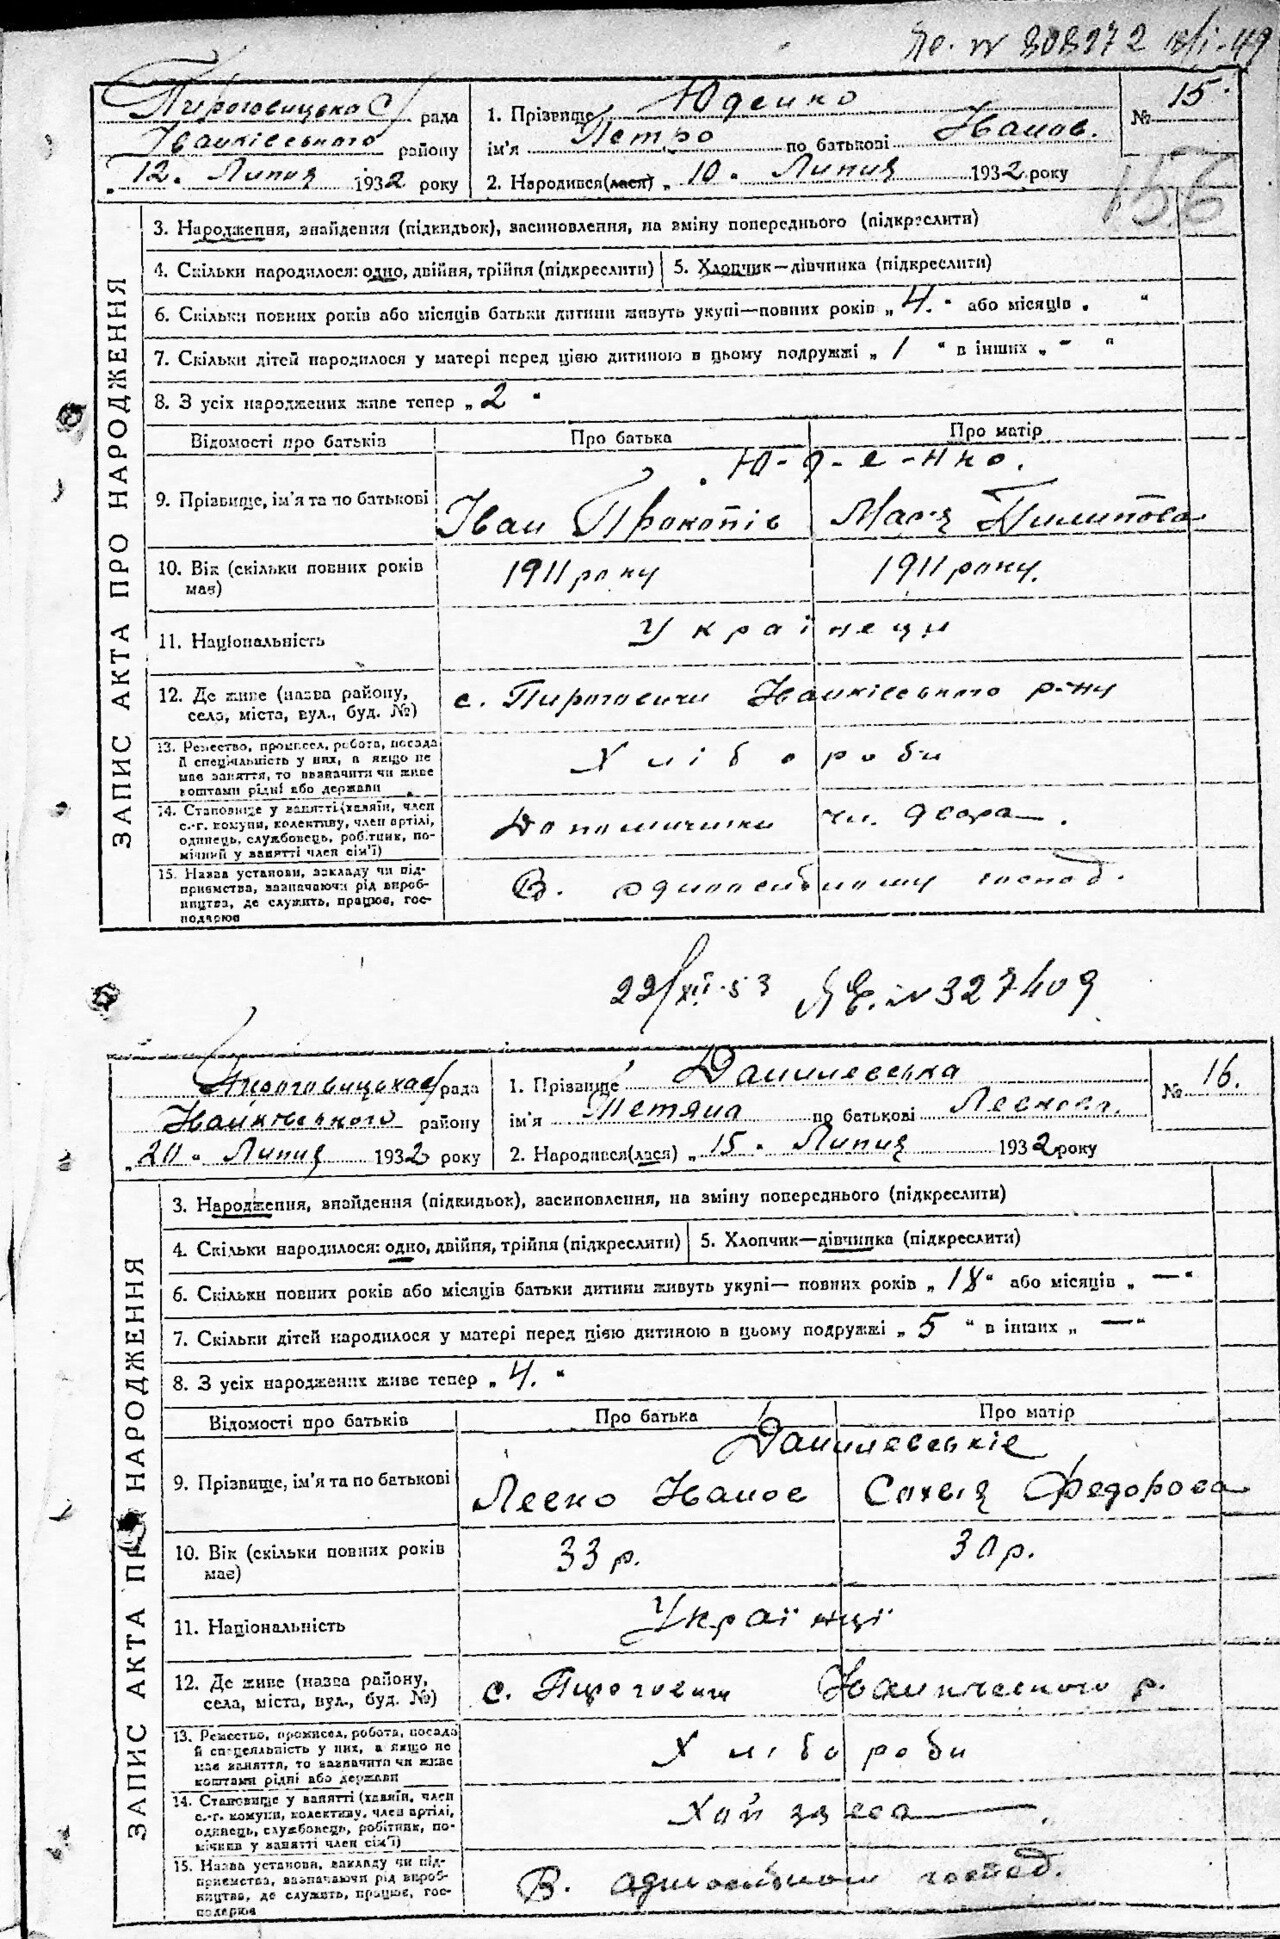 № 303272 13/I-49
Пироговицька С/ рада
Іванківського району
"12" Липня 1932 року
1. Прізвище Юденко
ім'я Петро по батькові Іванов.
2. Народився(лася) "10" Липня 1932 року
№ 15.
156
ЗАПИС АКТА ПРО НАРОДЖЕННЯ
3. Народження, знайдення (підкидьок), засиновлення, на зміну попереднього (підкреслити)
4. Скільки народилося: одно, двійня, трійня (підкреслити) 5. Хлопчик—дівчинка (підкреслити)
6. Скільки повних років або місяців батьки дитини живуть укупі—повних років „4." або місяців „ "
7. Скільки дітей народилося у матері перед цією дитиною в цьому подружжі „1" в інших „-"
8. З усіх народжених живе тепер „2"
Відомості про батьків Про батька Про матір
Ю-д-е-нко.
9. Прізвище, ім'я та по батькові Іван Прокопів Мар'я Пилипова
10. Вік (скільки повних років має) 1911 року 1911 року.
11. Національність Українеци
12. Де живе (назва району, с. Пироговичи Іванківського р-ну
село, міста, вул., буд. №)
13. Ремество, промисел, робота, посада Хлібороби
й спеціяльність у них, а якщо не
має заняття, то визначити чи живе
коштами рідні або держави
14. Становище у занятті (хазяїн, член Допомичники чл. двора.
с.-г. комуни, колективу, член артілі,
одинець, службовець, робітник, по-
мічний у занятті член сім'ї)
15. Назва установи, закладу чи під- В. одноосибному господ.
приємства, зазначаючи рід вироб-
ництва, де служить, працює, гос-
подарює
22/XII-53 ЯЕ. № 327409
Пироговицькая с/рада
Іванківського району
"20" Липня 1932 року
1. Прізвище Данилевська
ім'я Тетяна по батькові Левкова.
2. Народився(лася) „15" Липня 1932 року
№ 16.
ЗАПИС АКТА ПРО НАРОДЖЕННЯ
3. Народження, знайдення (підкидьок), засиновлення, на зміну попереднього (підкреслити)
4. Скільки народилося: одно, двійня, трійня (підкреслити) 5. Хлопчик—дівчинка (підкреслити)
6. Скільки повних років або місяців батьки дитини живуть укупі— повних років „18" або місяців „—"
7. Скільки дітей народилося у матері перед цією дитиною в цьому подружжі „5" в інших „—"
8. З усіх народжених живе тепер „4."
Відомості про батьків Про батька Про матір
Данилевськіе
9. Прізвище, ім'я та по батькові Левко Іванов Софья Федорова
10. Вік (скільки повних років має) 33 р. 30 р.
11. Національність Українці
12. Де живе (назва району, с. Пирогович Іванкивского р.
села, міста, вул., буд. №)
13. Ремество, промисел, робота, посада Хлібороби
й спеціяльність у них, а якщо не
має заняття, то зазначити чи живе
коштами рідні або держави
14. Становище у занятті (хазяїн, член Хойзяева
с.-г. комуни, колективу, член артілі,
одинець, службовець, робітник, по-
мічник у занятті член сім'ї)
15. Назва установи, закладу чи під- В. одноосибном господ.
приємства, зазначаючи рід вироб-
ництва, де служить, працює, гос-
подарює